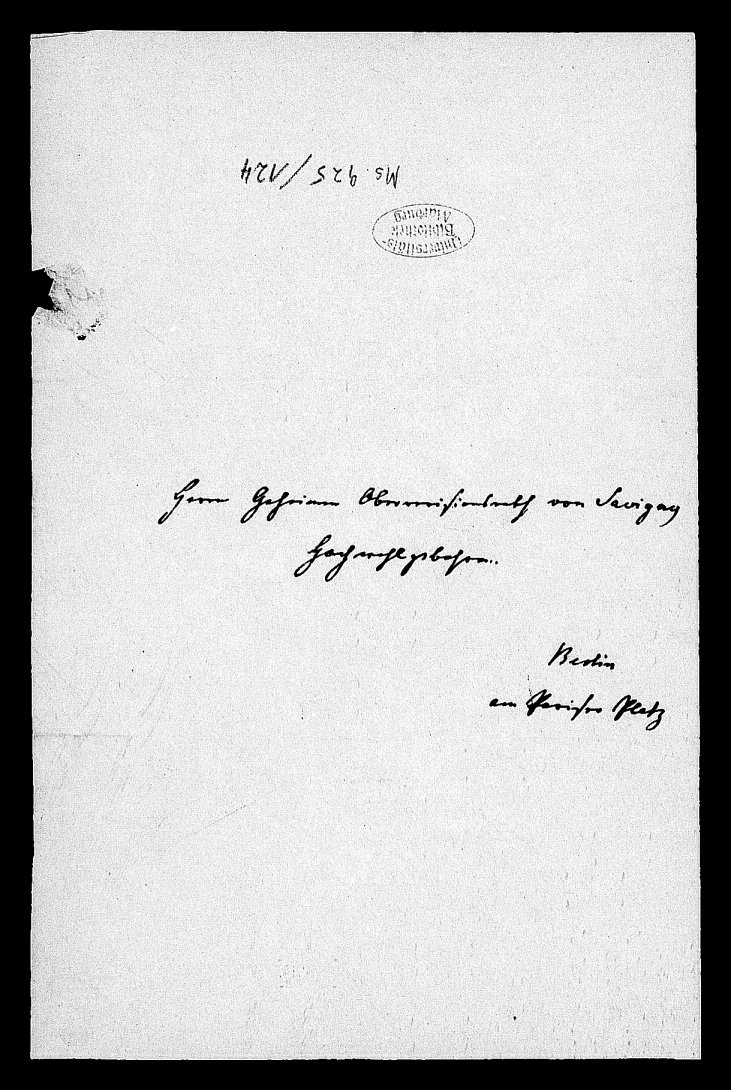 Ms. 925/124
Universitäts-
Bibliothek
Marburg
Herrn Geheimen Oberrevisionsrath von Savigny
Hochwohlgebohren.
Berlin
am Pariser Platz